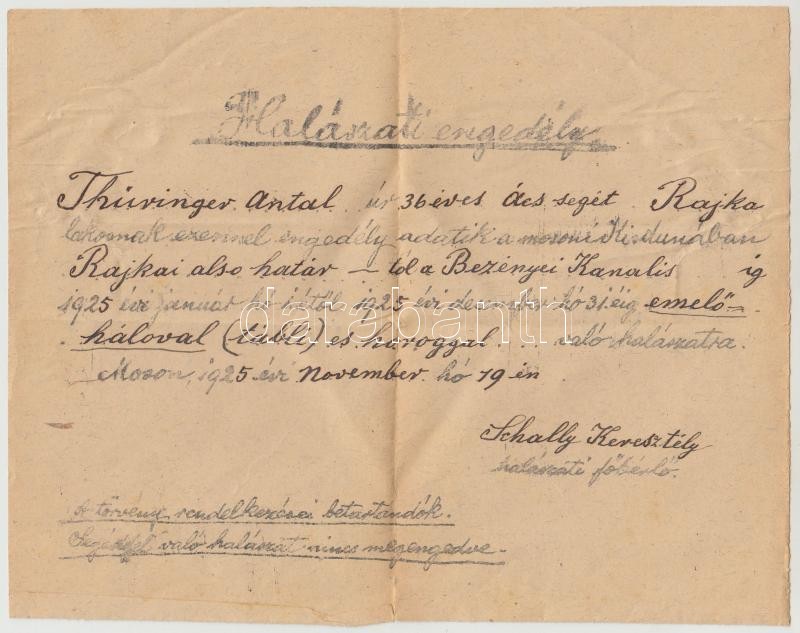 Halászati engedély
Thüringer Antal úr 36 éves ács segét Rajka
lakosnak ezennel engedély adatik a mosoni Kisdunában
Rajkai alsó határ – tól a Bezényei Kanális ig
1925 évi január hó 1 étől 1925 évi december hó 31. éig emelő=
hálóval (tübli) és horoggal való halászatra.
Moson, 1925 évi November hó 19 én
Schally Keresztély
halászati főbérlő.
A törvény rendelkezései betartandók.
való halászat nincs megengedve.
darabanth